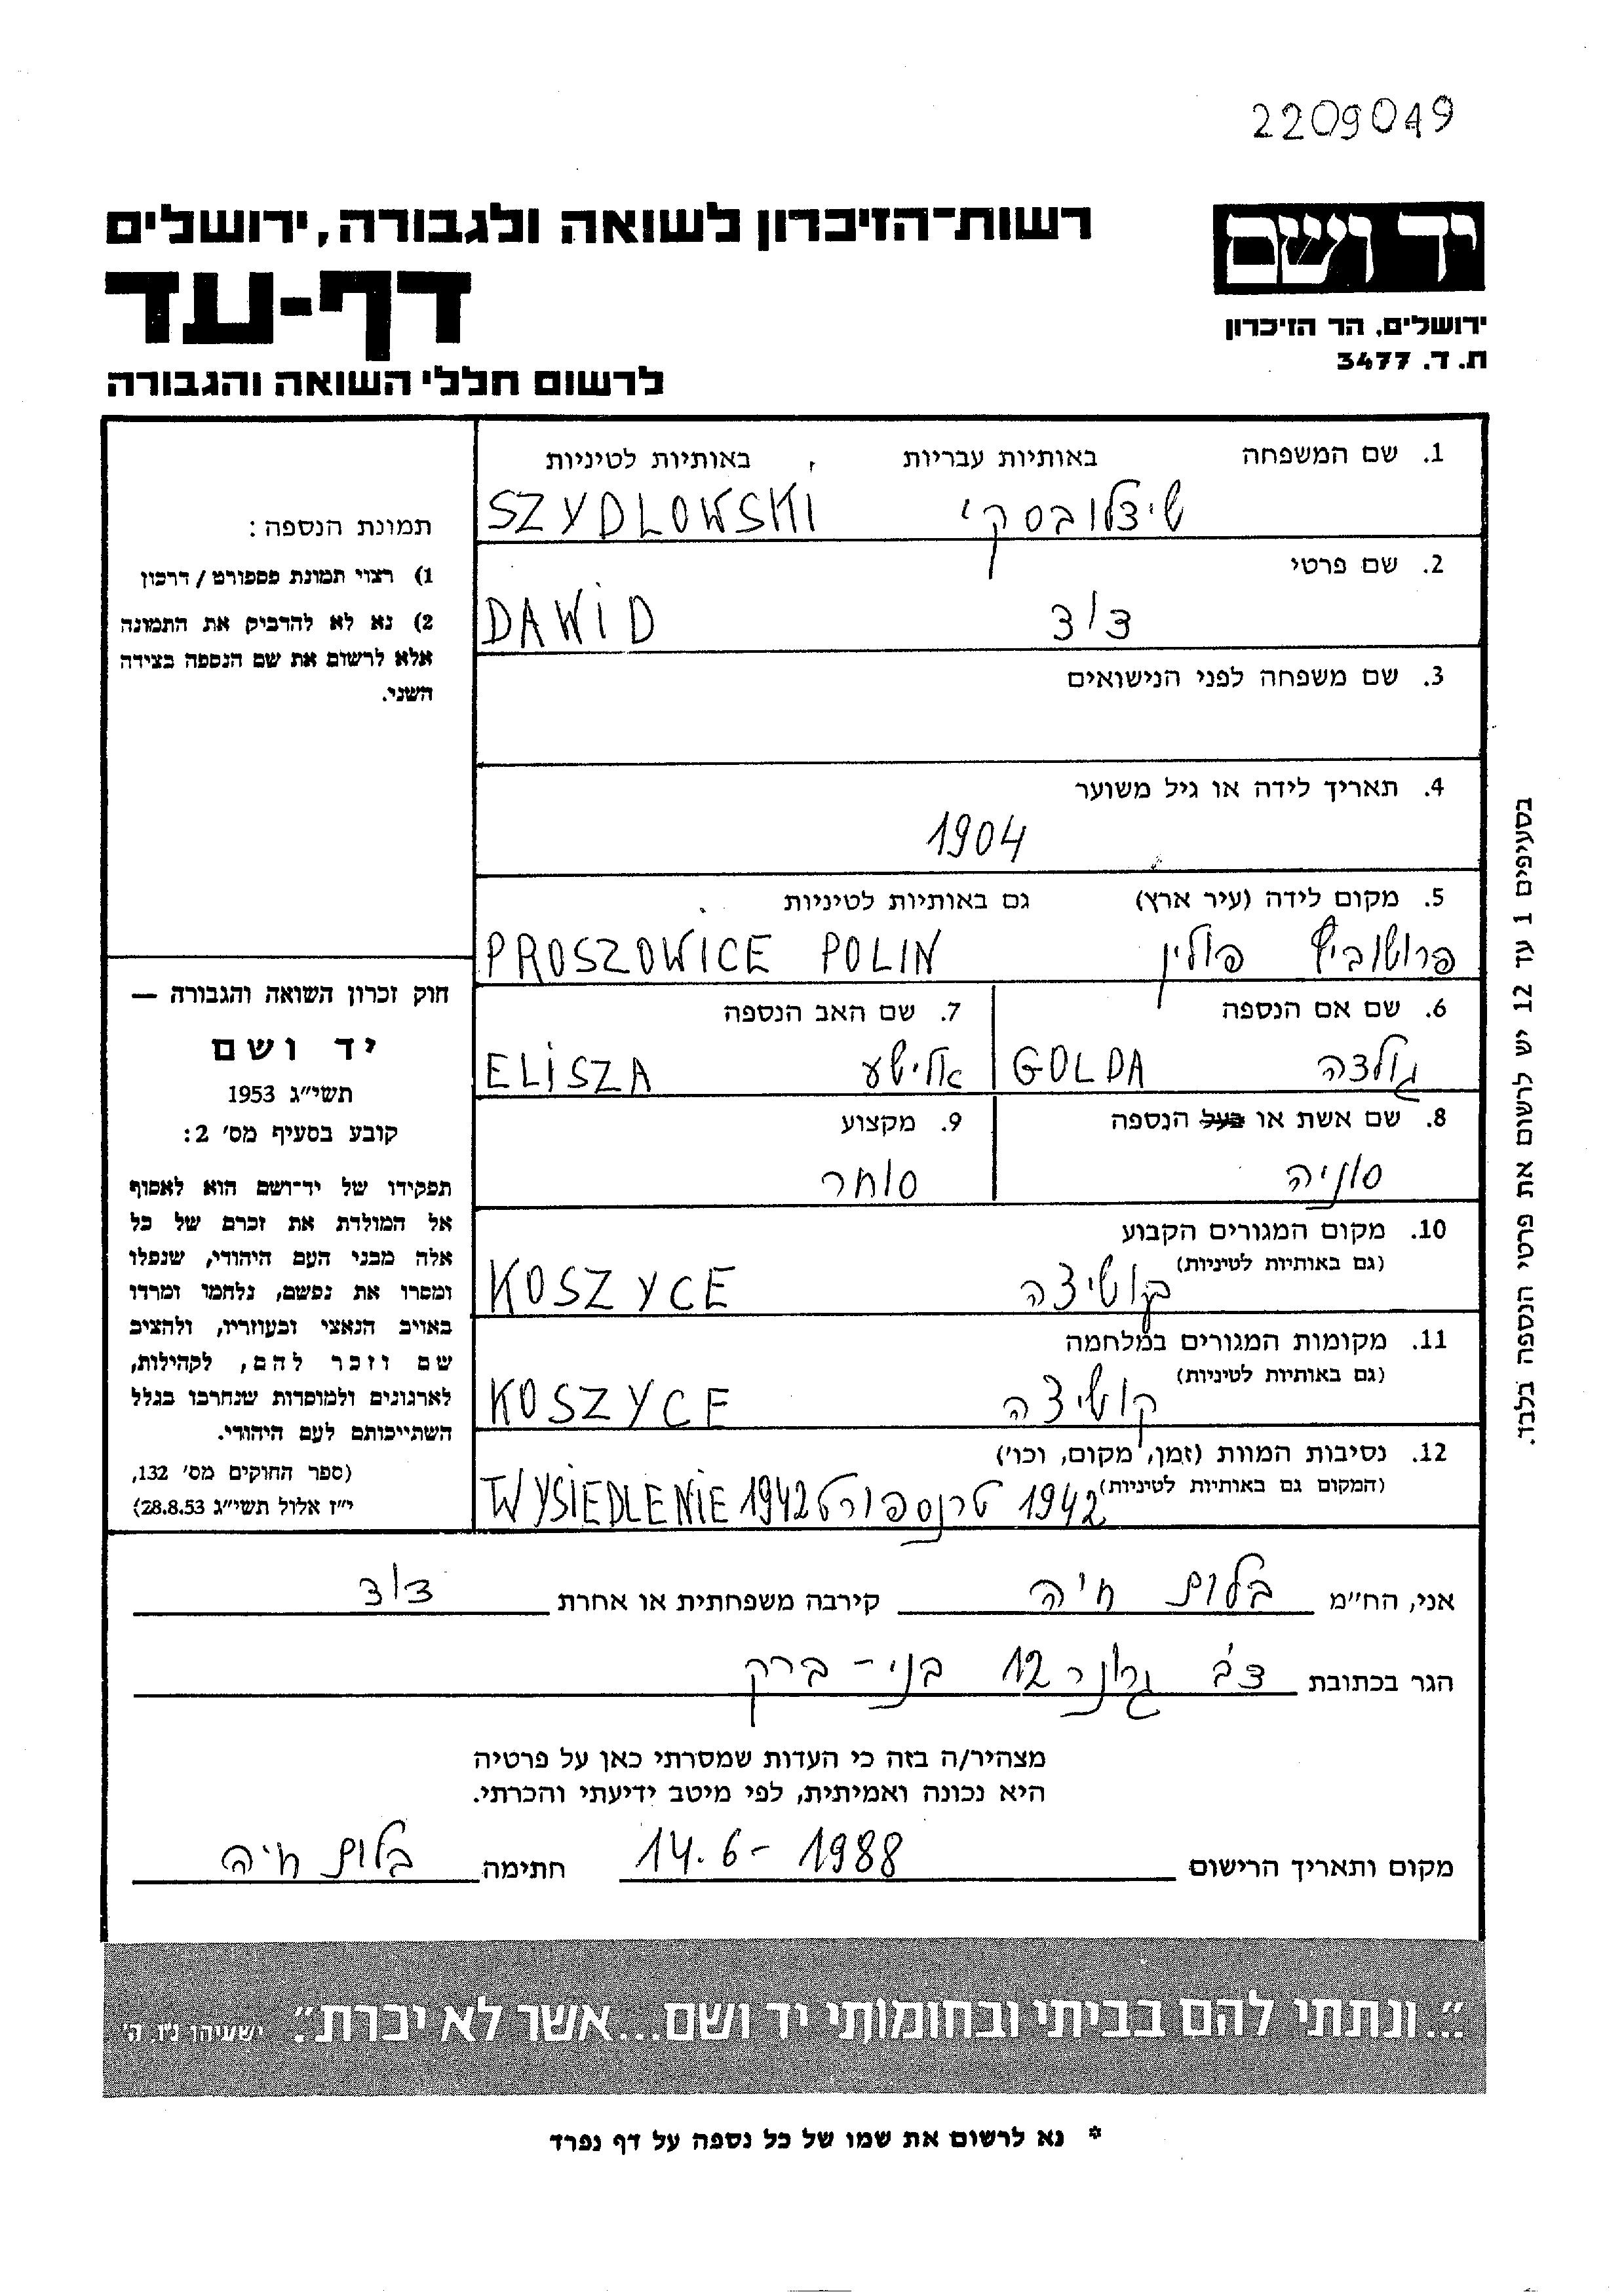 2209049
יד ושם
ירושלים, הר הזיכרון
ת. ד. 3477
רשות-הזיכרון לשואה ולגבורה, ירושלים
דף-עד
לרשום חללי השואה והגבורה
1. שם המשפחה באותיות עבריות באותיות לטיניות
שידלובסקי SZYDLOWSKI
2. שם פרטי
דוד DAWID
3. שם משפחה לפני הנישואים
4. תאריך לידה או גיל משוער
1904
5. מקום לידה (עיר ארץ) גם באותיות לטיניות
פרושוביץ פולין PROSZOWICE POLIN
6. שם אם הנספה
גולדה GOLDA
7. שם האב הנספה
אלישע ELISZA
8. שם אשת או בעל הנספה
סוניה
9. מקצוע
סוחר
10. מקום המגורים הקבוע
(גם באותיות לטיניות)
קושיצה KOSZYCE
11. מקומות המגורים במלחמה
(גם באותיות לטיניות)
קושיצה KOSZYCE
12. נסיבות המוות (זמן, מקום, וכו')
(המקום גם באותיות לטיניות)
1942 טרנספורט WYSIEDLENIE 1942
תמונת הנספה:
1) רצוי תמונת פספורט / דרכון
2) נא לא להדביק את התמונה
אלא לרשום את שם הנספה בצידה
השני.
חוק זכרון השואה והגבורה —
יד ושם
תשי"ג 1953
קובע בסעיף מס' 2:
תפקידו של יד-ושם הוא לאסוף
אל המולדת את זכרם של כל
אלה מבני העם היהודי, שנפלו
ומסרו את נפשם, נלחמו ומרדו
באויב הנאצי ובעוזריו, ולהציב
שם וזכר להם, לקהילות,
לארגונים ולמוסדות שנחרבו בגלל
השתייכותם לעם היהודי.
(ספר החוקים מס' 132,
י"ז אלול תשי"ג 28.8.53)
בסעיפים 1 עד 12 יש לרשום את פרטי הנספה בלבד.
אני, הח"מ בלות חיה קירבה משפחתית או אחרת דוד
הגר בכתובת 12 בני - ברק
מצהיר/ה בזה כי העדות שמסרתי כאן על פרטיה
היא נכונה ואמיתית, לפי מיטב ידיעתי והכרתי.
מקום ותאריך הרישום 14.6-1988 חתימה בלות חיה
"...ונתתי להם בביתי ובחומותי יד ושם...אשר לא יכרת". ישעיהו נ"ו, ה'
* נא לרשום את שמו של כל נספה על דף נפרד